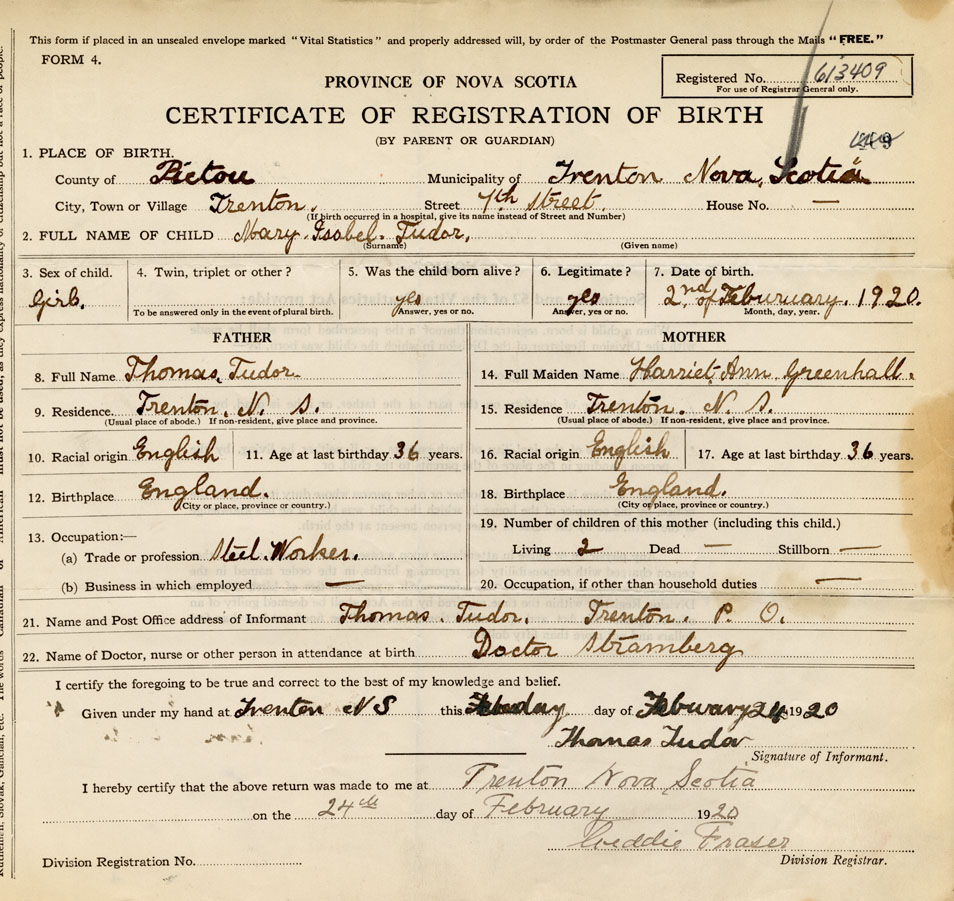 This form if placed in an unsealed envelope marked "Vital Statistics" and properly addressed will, by order of the Postmaster General pass through the Mails "FREE."
FORM 4.
Registered No. 613409
For use of Registrar General only.
PROVINCE OF NOVA SCOTIA
CERTIFICATE OF REGISTRATION OF BIRTH
(BY PARENT OR GUARDIAN)
1. PLACE OF BIRTH.
County of Pictou Municipality of Trenton Nova Scotia
City, Town or Village Trenton. Street 7th Street. House No. —
(If birth occurred in a hospital, give its name instead of Street and Number)
2. FULL NAME OF CHILD Mary Isobel Tudor.
(Surname) (Given name)
3. Sex of child. 4. Twin, triplet or other? 5. Was the child born alive? 6. Legitimate? 7. Date of birth.
Girl. yes yes 2nd of Feburuary. 1920.
To be answered only in the event of plural birth. Answer, yes or no. Answer, yes or no. Month, day, year.
FATHER MOTHER
8. Full Name Thomas, Tudor. 14. Full Maiden Name Harriet Ann Greenhall.
9. Residence. Trenton. N. S. 15. Residence Trenton. N. S.
(Usual place of abode.) If non-resident, give place and province. (Usual place of abode.) If non-resident, give place and province.
10. Racial origin English 11. Age at last birthday 36 years. 16. Racial origin English 17. Age at last birthday 36 years.
12. Birthplace England. 18. Birthplace England.
(City or place, province or country.) (City or place, province or country.)
13. Occupation:— 19. Number of children of this mother (including this child.)
(a) Trade or profession Steel Worker. Living 2 Dead — Stillborn —
(b) Business in which employed — 20. Occupation, if other than household duties —
21. Name and Post Office address of Informant Thomas. Tudor. Trenton. P. O.
22. Name of Doctor, nurse or other person in attendance at birth Doctor Stramberg
I certify the foregoing to be true and correct to the best of my knowledge and belief.
Given under my hand at Trenton N S this day of February 24 1920
Thomas Tudor
Signature of Informant.
I hereby certify that the above return was made to me at Trenton Nova Scotia
on the 24th day of February 1920
Fraser
Division Registration No. Division Registrar.